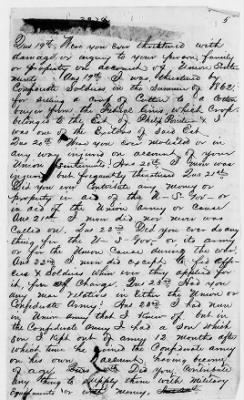 5
Ques 19th. Were you ever threatened with
damage or injury to your person, family
or property on account of Union Senti-
ments? Ans 19th. I was, threatened by
Confederate Soldiers in the Summer of 1862,
for selling a Crop of Cotton to a Cotton
buyer from the Federal lines, which Crop
belonged to the Est. of & I
was one of the Exrs of said Est.
Ques 20th. Was you ever molested or in
any way injured on account of your
Union Sentiments? Ans 20th. I never was
injured but frequently threatened. Ques 21st.
Did you ever Contribute any money or
property in aid of the U-S-Gov- or
in aid of the Union army or Cause
Ans 21st I never did nor never was
Called on. Ques 22d. Did you ever do any
thing for the U-S-Gov- or its army
or for the Union Cause during the war,
Ans 22d I never did except to feed Offi-
cers & Soldiers when ever they applied for
it, free of Charge. Ques 23d Had you
any near relatives in either the Union or
Confederate Army? Ans 23d I had none
in Union army that I knew of but in
the Confederate Army I had a Son which
Son I kept out of army 12 months after
which time he joined the Confederate army
on his own account, having become
of age. Did you Contribute
any thing to supply them with Military
Equipments or with money.